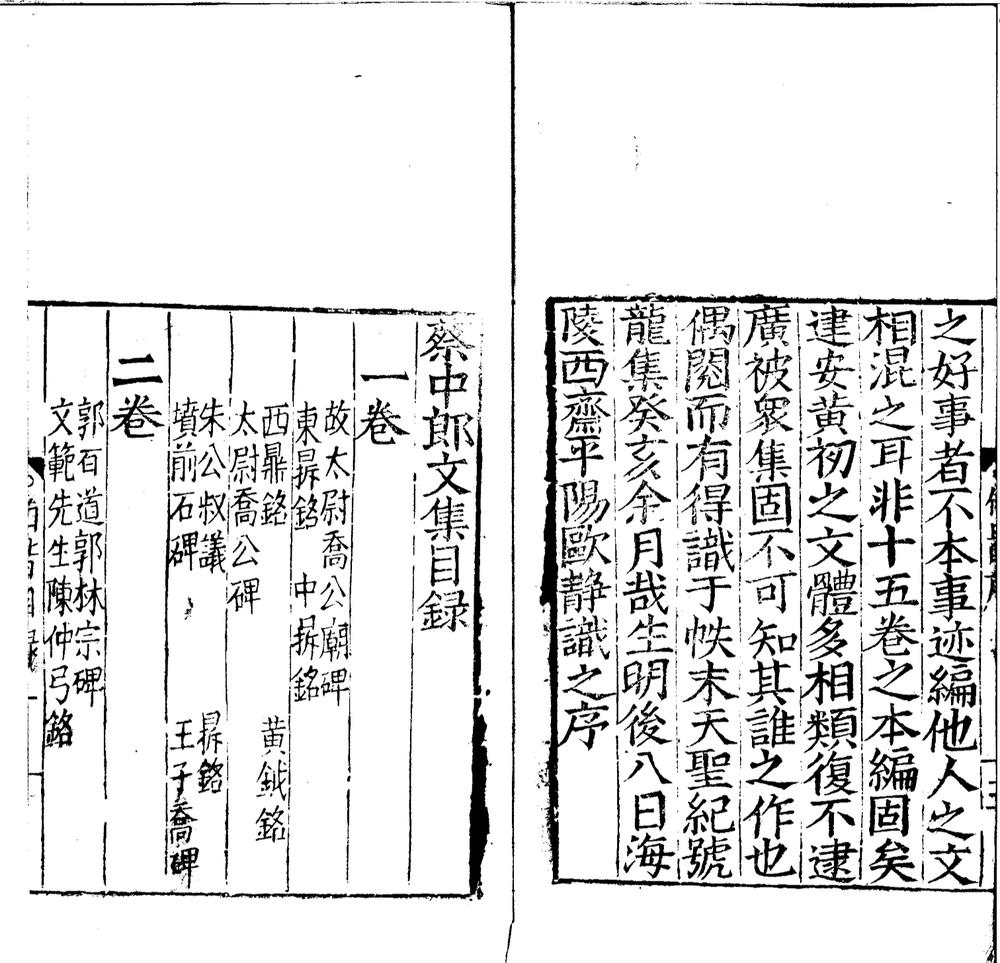 之好事者不本事迹編他人之文
相混之耳非十五卷之本編固矣
建安黄初之文體多相類復不逮
廣被衆集固不可知其誰之作也
偶閱而有得識于帙末天聖紀號
龍集癸亥余月哉生明後八日海
陵西齋平陽歐静識之序
蔡中郎文集目録
一卷
故太尉喬公廟碑
東鼎銘 中鼎銘
西鼎銘 黄鉞銘
太尉喬公碑
朱公叔議 鼎銘
墳前石碑 王子喬碑
二卷
郭有道郭林宗碑
文範先生陳仲弓銘